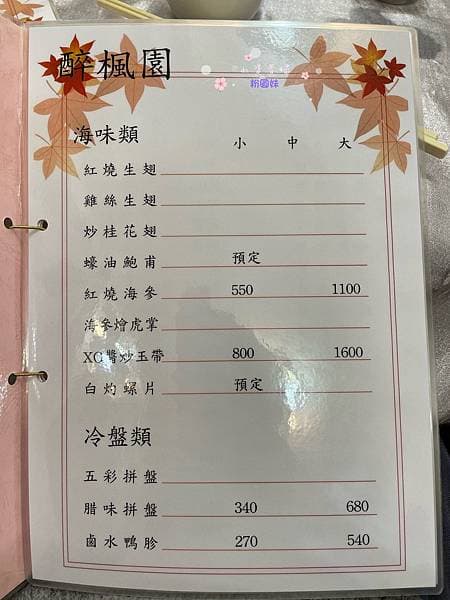 醉楓園
粉圓妹
海味類 小 中 大
紅燒生翅
雞絲生翅
炒桂花翅
蠔油鮑甫 預定
紅燒海參 550 1100
海參燴虎掌
XO醬炒玉帶 800 1600
白灼螺片 預定
冷盤類
五彩拼盤
腊味拼盤 340 680
鹵水鴨胗 270 540